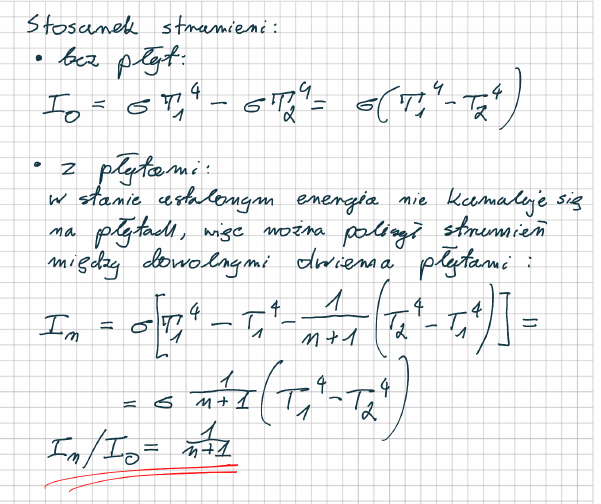 Stosunek strumieni:
• bez płyt:
I₀ = σT₁⁴ - σT₂⁴ = σ(T₁⁴ - T₂⁴)
• z płytami:
w stanie ustalonym energia nie kumuluje się
na płytach, więc można policzyć strumień
między dowolnymi dwiema płytami:
Iₙ = σ[T₁⁴ - T₁⁴ - 1/(n+1) (T₂⁴ - T₁⁴)] =
= σ 1/(n+1) (T₁⁴ - T₂⁴)
Iₙ/I₀ = 1/(n+1)